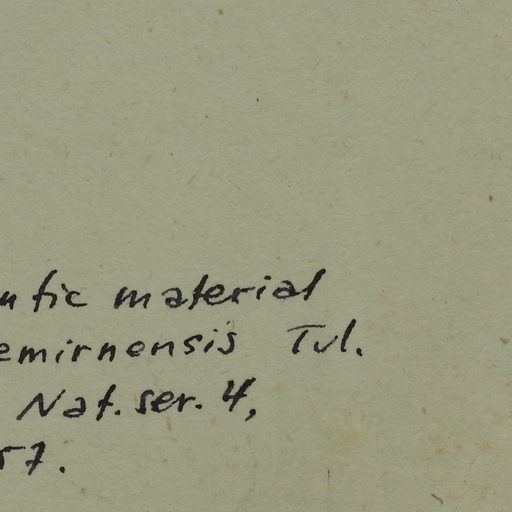 ntic material
emirnensis Tul.
Nat. ser. 4,
57.